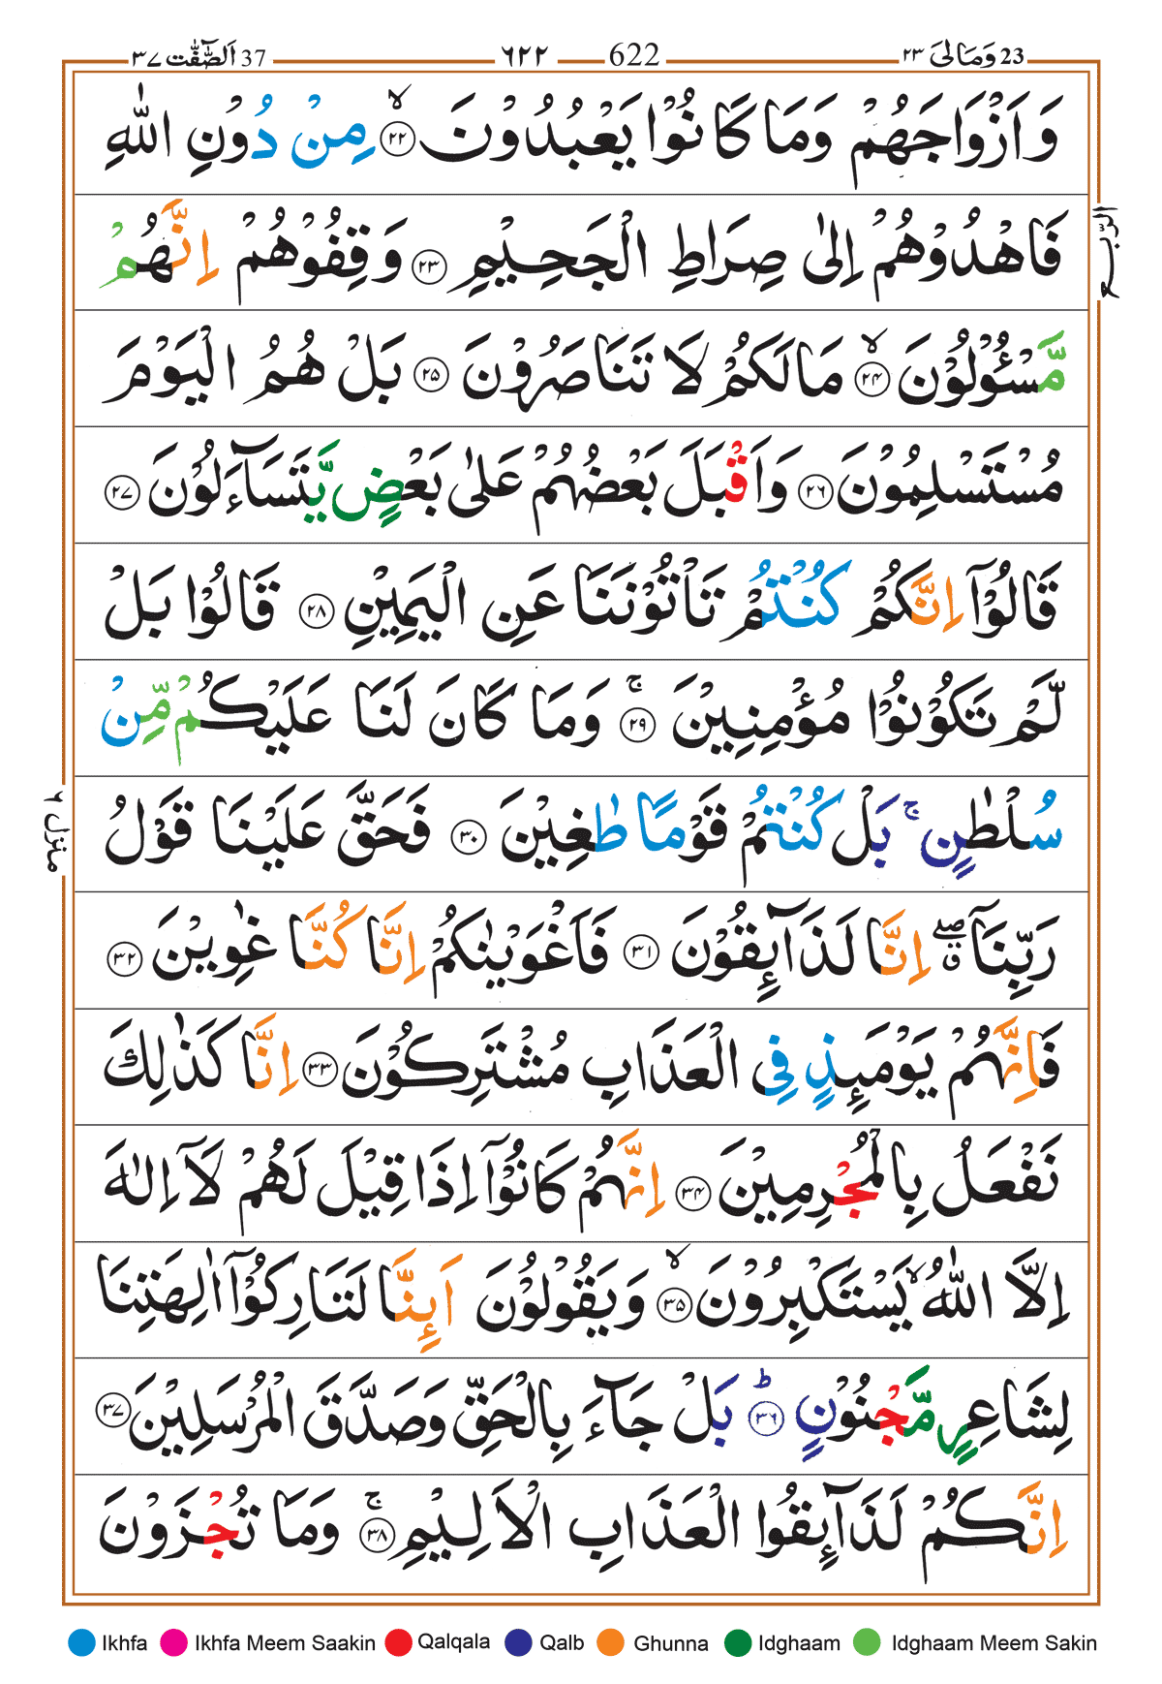 37 اَلصّٰٓفّٰت ٣٧ ٦٢٢ 622 23 وَمَالِىَ ٢٣
وَاَزْوَاجَهُمْ وَمَا كَانُوْا يَعْبُدُوْنَ ۙ‏ ٢٢ مِنْ دُوْنِ اللّٰهِ
فَاهْدُوْهُمْ اِلٰى صِرَاطِ الْجَحِيْمِ ٢٣ وَقِفُوْهُمْ اِنَّهُمْ
مَّسْـُٔوْلُوْنَ ۙ ٢٤ مَا لَكُمْ لَا تَنَاصَرُوْنَ ٢٥ بَلْ هُمُ الْيَوْمَ
مُسْتَسْلِمُوْنَ ٢٦ وَاَقْبَلَ بَعْضُهُمْ عَلٰى بَعْضٍ يَّتَسَآءَلُوْنَ ٢٧
قَالُوْٓا اِنَّكُمْ كُنْتُمْ تَاْتُوْنَنَا عَنِ الْيَمِيْنِ ٢٨ قَالُوْا بَلْ
لَّمْ تَكُوْنُوْا مُؤْمِنِيْنَ ۚ ٢٩ وَمَا كَانَ لَنَا عَلَيْكُمْ مِّنْ
سُلْطٰنٍ ۚ بَلْ كُنْتُمْ قَوْمًا طٰغِيْنَ ٣٠ فَحَقَّ عَلَيْنَا قَوْلُ
رَبِّنَآ ۖ ق اِنَّا لَذَآىِٕقُوْنَ ٣١ فَاَغْوَيْنٰكُمْ اِنَّا كُنَّا غٰوِيْنَ ٣٢
فَاِنَّهُمْ يَوْمَىِٕذٍ فِى الْعَذَابِ مُشْتَرِكُوْنَ ٣٣ اِنَّا كَذٰلِكَ
نَفْعَلُ بِالْمُجْرِمِيْنَ ٣٤ اِنَّهُمْ كَانُوْٓا اِذَا قِيْلَ لَهُمْ لَآ اِلٰهَ
اِلَّا اللّٰهُ ۙ يَسْتَكْبِرُوْنَ ۙ ٣٥ وَيَقُوْلُوْنَ اَىِٕنَّا لَتَارِكُوْٓا اٰلِهَتِنَا
لِشَاعِرٍ مَّجْنُوْنٍ ؕ ٣٦ بَلْ جَآءَ بِالْحَقِّ وَصَدَّقَ الْمُرْسَلِيْنَ ٣٧
اِنَّكُمْ لَذَآىِٕقُوا الْعَذَابِ الْاَلِيْمِ ۚ ٣٨ وَمَا تُجْزَوْنَ
الربع
منزل ٦
Ikhfa Ikhfa Meem Saakin Qalqala Qalb Ghunna Idghaam Idghaam Meem Sakin